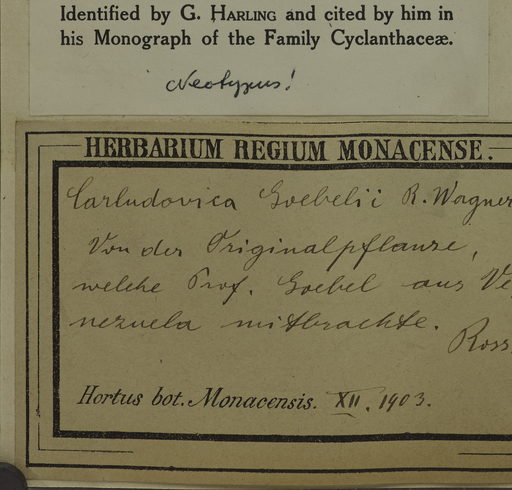 Identified by G. Harling and cited by him in
his Monograph of the Family Cyclanthaceæ.
Neotypus!
HERBARIUM REGIUM MONACENSE.
Carludovica Goebelii R. Wagner
Von der Originalpflanze,
welche Prof. Goebel aus Ve
nezuela mitbrachte.
Ross
Hortus bot. Monacensis. XII. 1903.